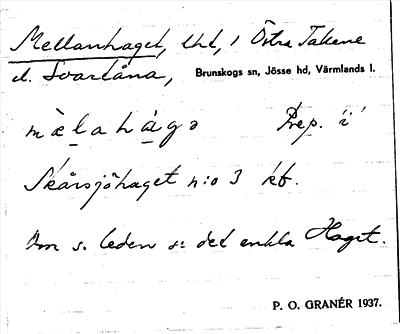 Mellanhaget, Uht, i Östra Takene
el. Svartåna, Brunskogs sn, Jösse hd, Värmlands l.
mȧ̀lahȧ́gə Prep. "i"
Skårsjöhaget n:o 3 kf.
Om s. leden se det enkla Haget.
P. O. GRANÉR 1937.